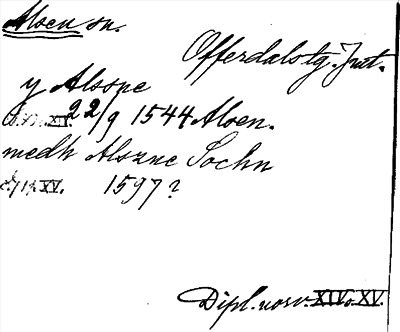 Alsen sn.
Offerdals tg. Jmt.
y Alsone
XV. 22/9 1544 Alsen.
medh Alszne Sochn
XV. 1597?
Dipl. norv. XIV o. XV.